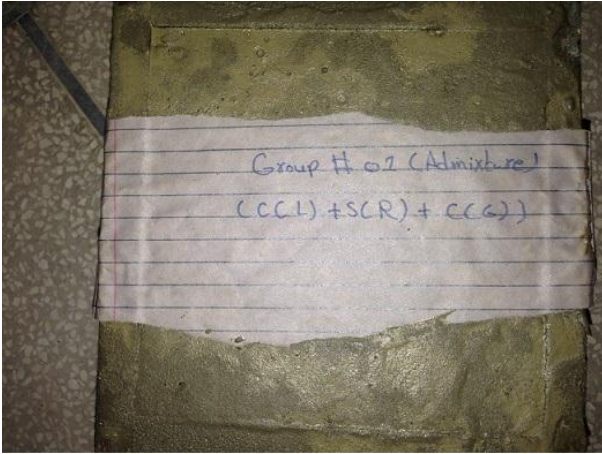 Group # 01 (Admixture)
(C(L) + S(R) + C(G))